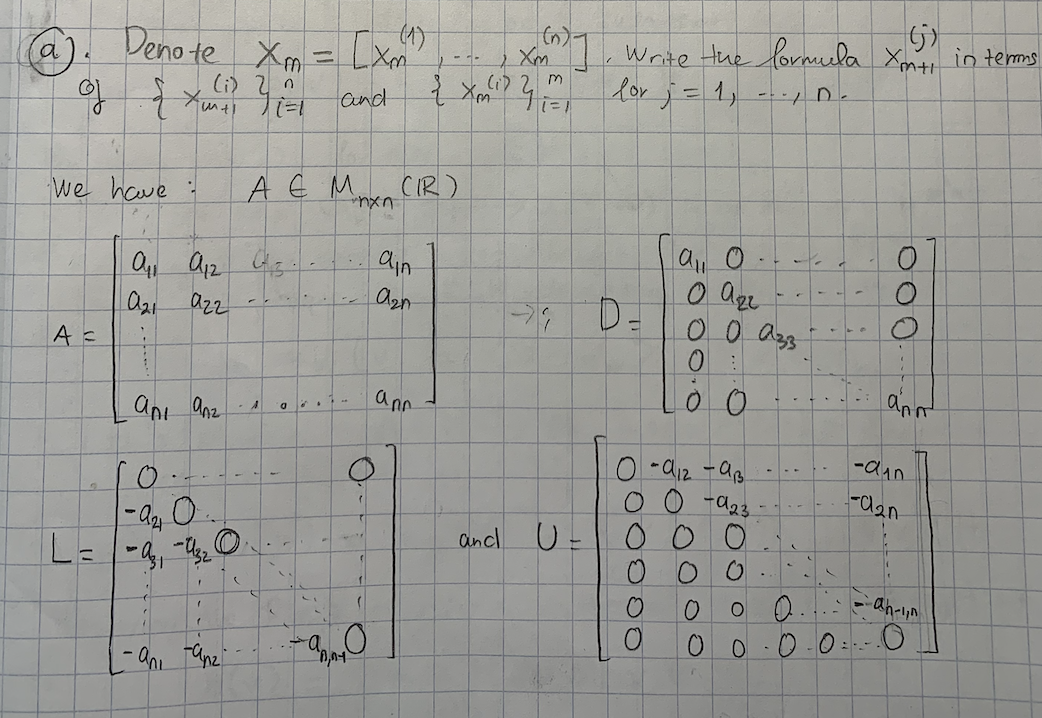 (a). Denote X_m = [x_m^(1), ..., x_m^(n)]. Write the formula x_{m+1}^(j) in terms
of { x_{m+1}^(i) }_{i=1}^n and { x_m^(i) }_{i=1}^m for j = 1, ..., n.
We have : A ∈ M_{n×n} (ℝ)
A = [ a_11 a_12 a_13 ..... a_1n
a_21 a_22 ........ a_2n
⋮
a_n1 a_n2 ........ a_nn ]
→; D = [ a_11 0 ...... 0
0 a_22 ...... 0
0 0 a_33 .... 0
0 ⋮
0 0 ...... a_nn ]
L = [ 0 ........ 0
-a_21 0 ..
-a_31 -a_32 0 ......
-a_n1 -a_n2 ...... -a_{n,n-1} 0 ]
and U = [ 0 -a_12 -a_13 ...... -a_1n
0 0 -a_23 ...... -a_2n
0 0 0 ...
0 0 0 ......
0 0 0 0 .... -a_{n-1,n}
0 0 0 0 0 .... 0 ]